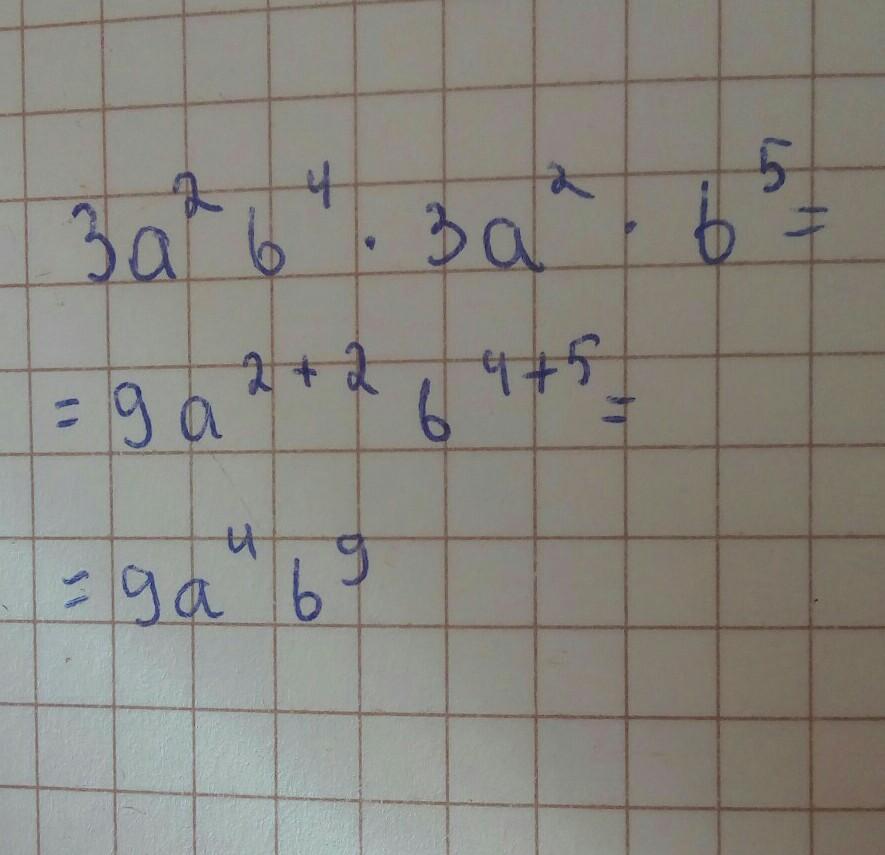 3a² b⁴ · 3a² · b⁵ =
= 9a²⁺² b⁴⁺⁵ =
= 9a⁴ b⁹